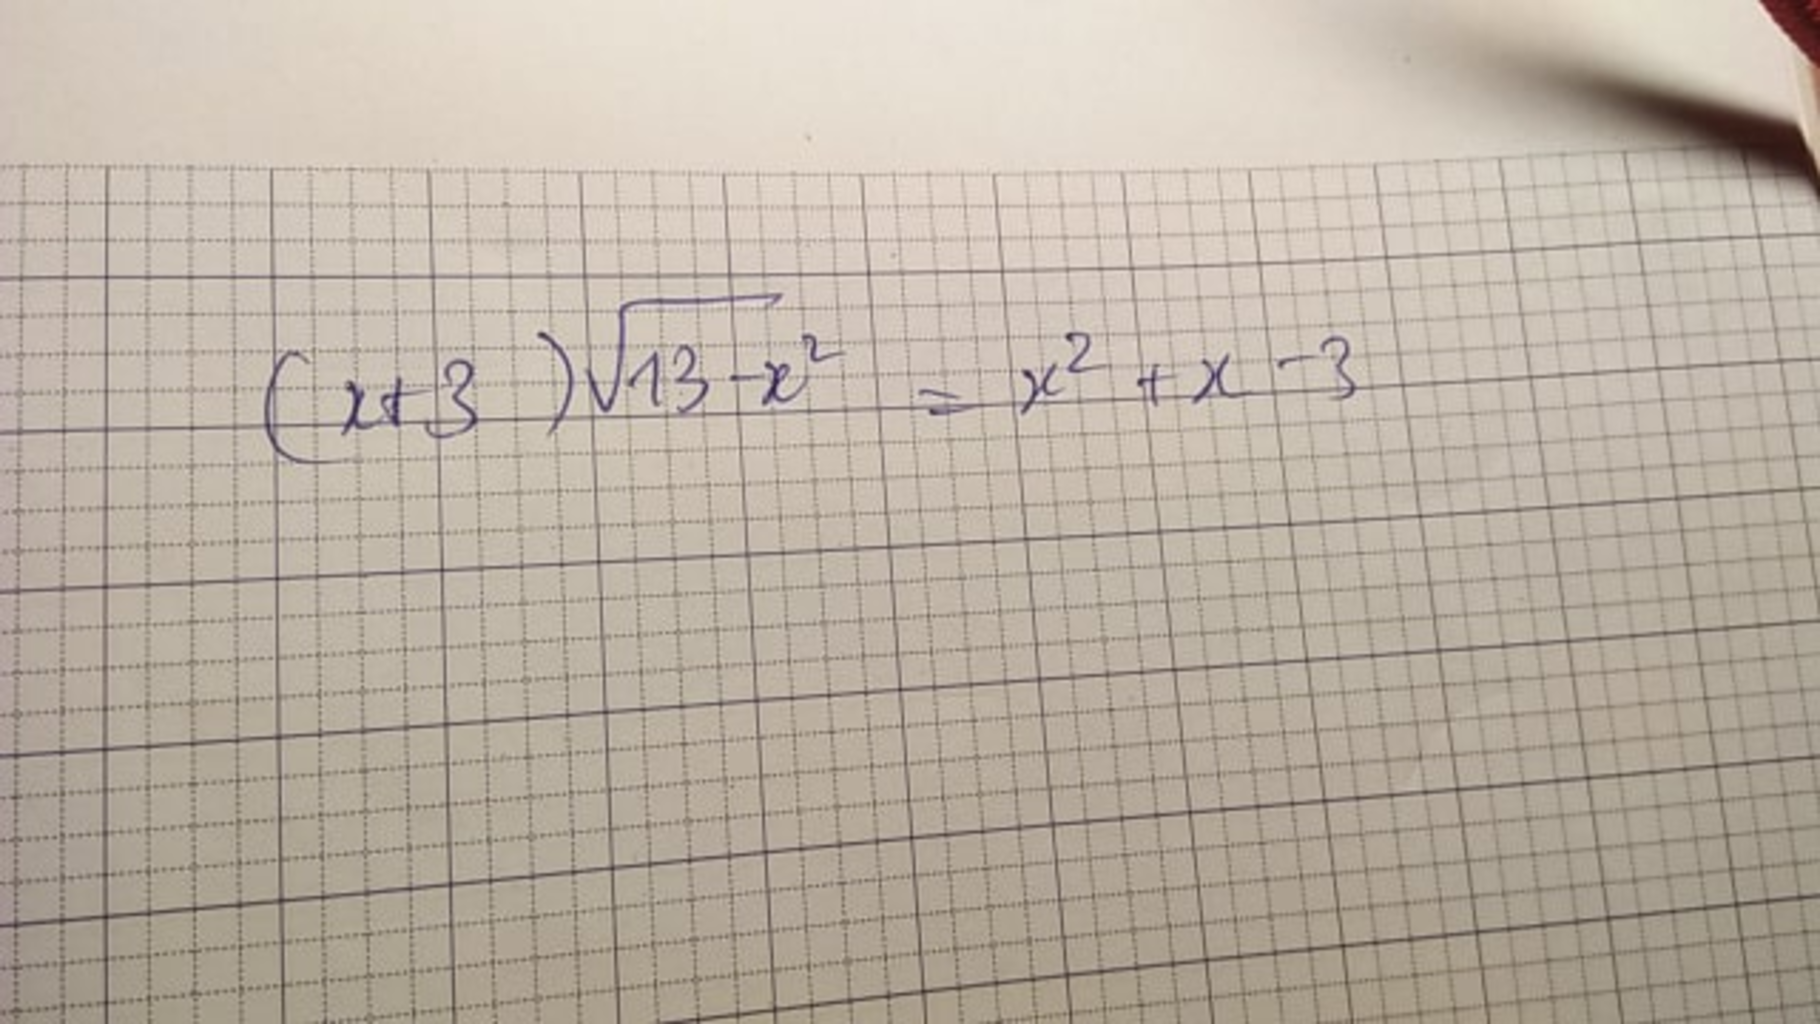 (x+3)√13-x² = x² + x - 3